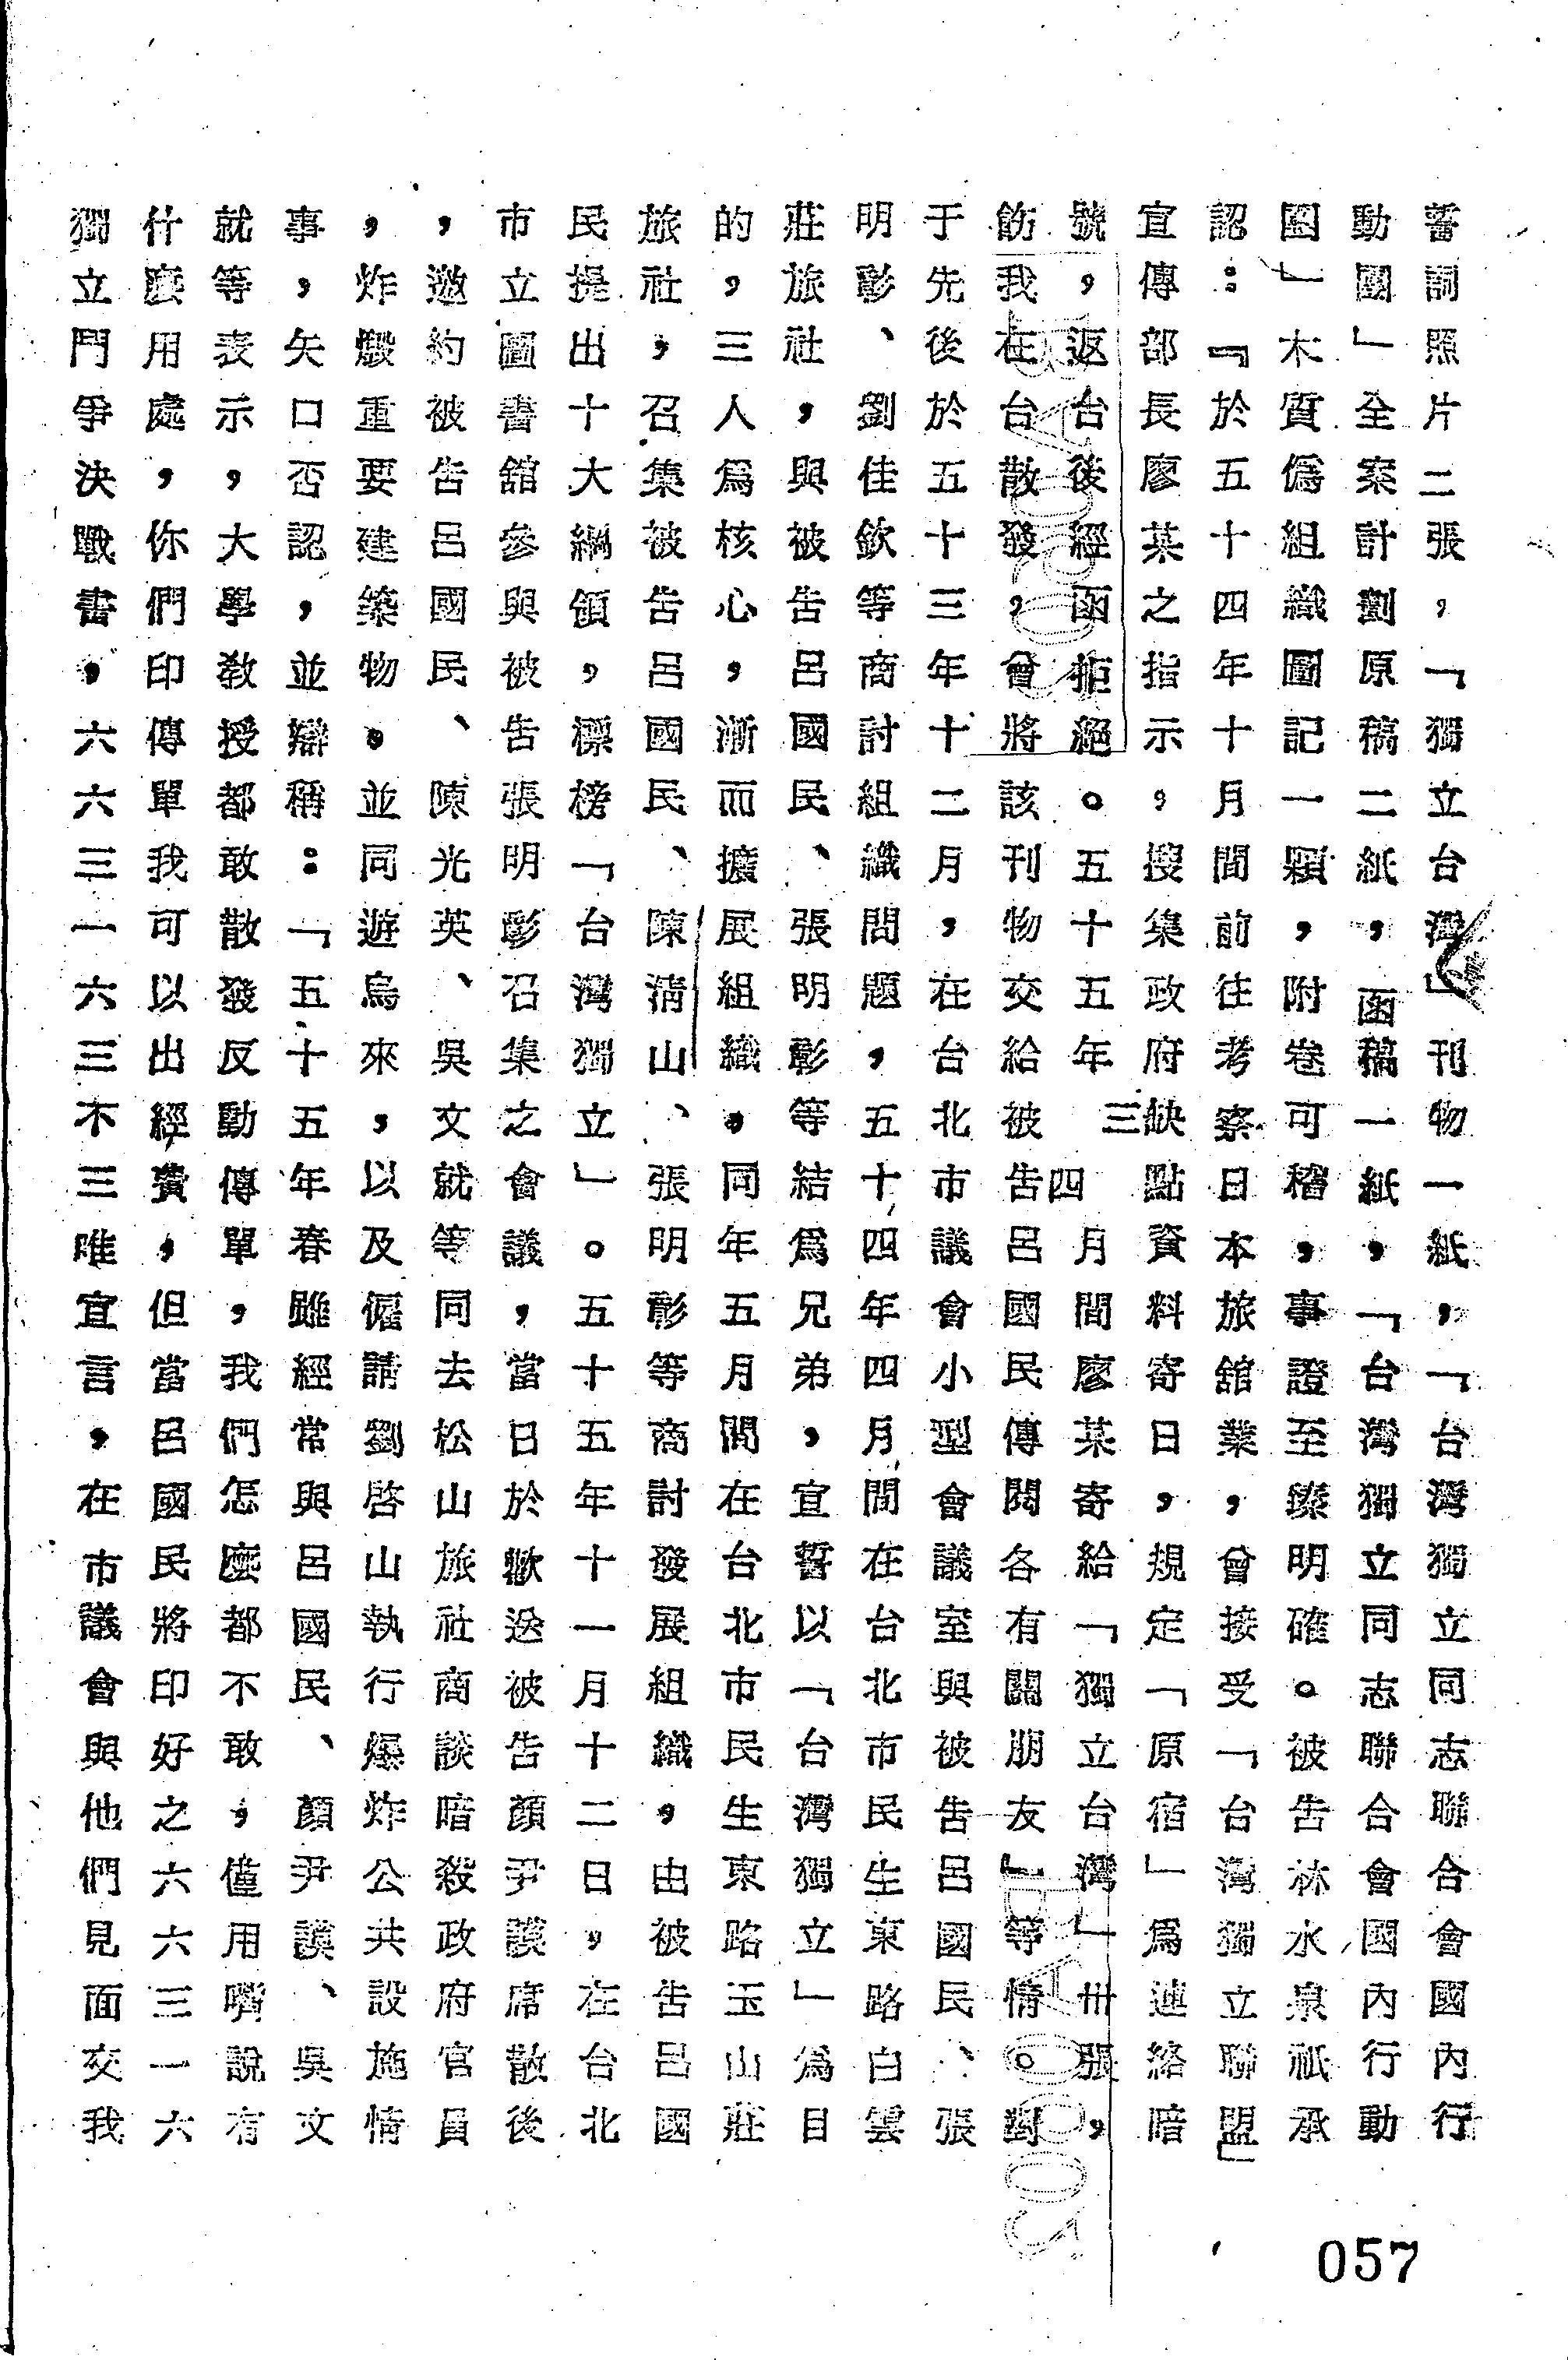 誓詞照片二張，「獨立台灣」刊物一紙，「台灣獨立同志聯合會國內行
動團」全案計劃原稿二紙，函稿一紙，「台灣獨立同志聯合會國內行動
團」木質僞組織圖記一顆，附卷可稽，事證至臻明確。被告林水泉祇承
認：『於五十四年十月間前往考察日本旅舘業，會接受「台灣獨立聯盟」
宣傳部長廖某之指示，搜集政府缺點資料寄日，規定「原宿」爲連絡暗
號，返台後經函拒絕。五十五年三四月間廖某寄給「獨立台灣」卅張，
飭我在台散發，會將該刊物交給被告呂國民傳閱各有關朋友』等情。對
于先後於五十三年十二月，在台北市議會小型會議室與被告呂國民、張
明彰、劉佳欽等商討組織問題，五十四年四月間在台北市民生東路白雲
莊旅社，與被告呂國民、張明彰等結爲兄弟，宣誓以「台灣獨立」爲目
的，三人爲核心，漸而擴展組織，同年五月間在台北市民生東路玉山莊
旅社，召集被告呂國民、陳淸山、張明彰等商討發展組織，由被告呂國
民提出十大綱領，標榜「台灣獨立」。五十五年十一月十二日，在台北
市立圖書舘參與被告張明彰召集之會議，當日於歡送被告顏尹謨席散後
，邀約被告呂國民、陳光英、吳文就等同去松山旅社商談暗殺政府官員
，炸燬重要建築物。並同遊烏來，以及僱請劉啓山執行爆炸公共設施情
事，矢口否認，並辯稱：「五十五年春雖經常與呂國民、顏尹謨、吳文
就等表示，大學敎授都敢散發反動傳單，我們怎麼都不敢，僅用嘴說有
什麼用處，你們印傳單我可以出經費，但當呂國民將印好之六六三一六
獨立門爭決戰書，六六三一六三不三唯宣言，在市議會與他們見面交我
057